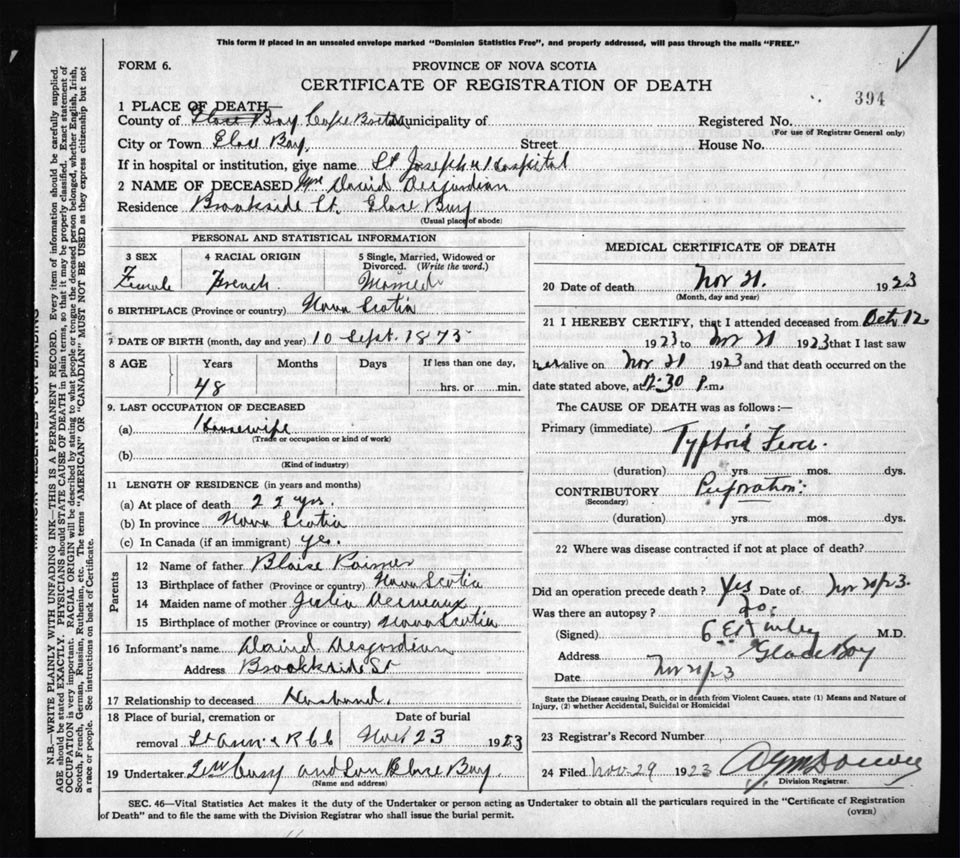 This form if placed in an unsealed envelope marked "Dominion Statistics Free", and properly addressed, will pass through the mails "FREE."
FORM 6.
PROVINCE OF NOVA SCOTIA
CERTIFICATE OF REGISTRATION OF DEATH
394
1 PLACE OF DEATH—
County of Glace Bay Cape Breton Municipality of
Registered No.
(For use of Registrar General only)
City or Town Glace Bay. Street House No.
If in hospital or institution, give name St Joseph's Hospital
2 NAME OF DECEASED Mrs David Desjardian
Residence Brookside St. Glace Bay
(Usual place of abode)
PERSONAL AND STATISTICAL INFORMATION
3 SEX 4 RACIAL ORIGIN 5 Single, Married, Widowed or Divorced. (Write the word.)
Female French Married
6 BIRTHPLACE (Province or country) Nova Scotia
7 DATE OF BIRTH (month, day and year) 10 Sept. 1875
8 AGE Years Months Days If less than one day,
48 hrs. or min.
9. LAST OCCUPATION OF DECEASED
(a) Housewife
(Trade or occupation or kind of work)
(b)
(Kind of industry)
11 LENGTH OF RESIDENCE (in years and months)
(a) At place of death 22 yrs.
(b) In province Nova Scotia
(c) In Canada (if an immigrant) yes.
Parents
12 Name of father Blaise
13 Birthplace of father (Province or country) Nova Scotia
14 Maiden name of mother Julia Deveaux
15 Birthplace of mother (Province or country) Nova Scotia
16 Informant's name David Desjardian
Address Brookside St
17 Relationship to deceased Husband.
18 Place of burial, cremation or removal St Anne's R C C
Date of burial Nov 23 1923
19 Undertaker and Son Glace Bay.
(Name and address)
MEDICAL CERTIFICATE OF DEATH
20 Date of death Nov 21. 1923
(Month, day and year)
21 I HEREBY CERTIFY, that I attended deceased from Oct 12
1923 to Nov 21 1923 that I last saw
her alive on Nov 21 1923 and that death occurred on the
date stated above, at 12:30 P.m.
The CAUSE OF DEATH was as follows:—
Primary (immediate) Typhoid Fever.
(duration) yrs. mos. dys.
CONTRIBUTORY Perforation
(Secondary)
(duration) yrs. mos. dys.
22 Where was disease contracted if not at place of death?
Did an operation precede death? Yes Date of Nov 20/23.
Was there an autopsy? no.
(Signed) M.D.
Address Glace Bay
Date Nov 21/23
State the Disease causing Death, or in death from Violent Causes, state (1) Means and Nature of
Injury, (2) whether Accidental, Suicidal or Homicidal
23 Registrar's Record Number
24 Filed Nov. 29 1923
Division Registrar.
SEC. 46—Vital Statistics Act makes it the duty of the Undertaker or person acting as Undertaker to obtain all the particulars required in the "Certificate of Registration
of Death" and to file the same with the Division Registrar who shall issue the burial permit.
(OVER)
N.B.—WRITE PLAINLY WITH UNFADING INK—THIS IS A PERMANENT RECORD. Every item of information should be carefully supplied.
AGE should be stated EXACTLY. PHYSICIANS should STATE CAUSE OF DEATH in plain terms, so that it may be properly classified. Exact statement of
OCCUPATION is very important. RACIAL ORIGIN will be described by stating to what people or tongue the deceased person belonged, whether English, Irish,
Scotch, French, German, Russian, Ruthenian, etc. The terms "AMERICAN" or "CANADIAN" MUST NOT BE USED as they express citizenship but not
a race or people. See instructions on back of Certificate.